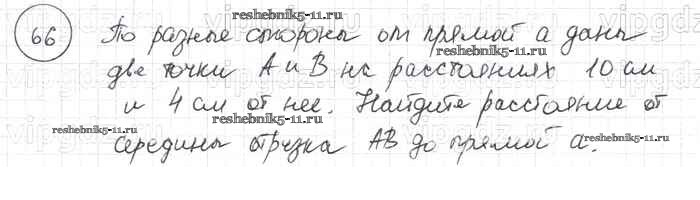 reshebnik5-11.ru
66 По разные стороны от прямой a даны
две точки А и В на расстояниях 10 см
reshebnik5-11.ru
и 4 см от нее. Найдите расстояние от
reshebnik5-11.ru
reshebnik5-11.ru
середины отрезка АВ до прямой a.
reshebnik5-11.ru